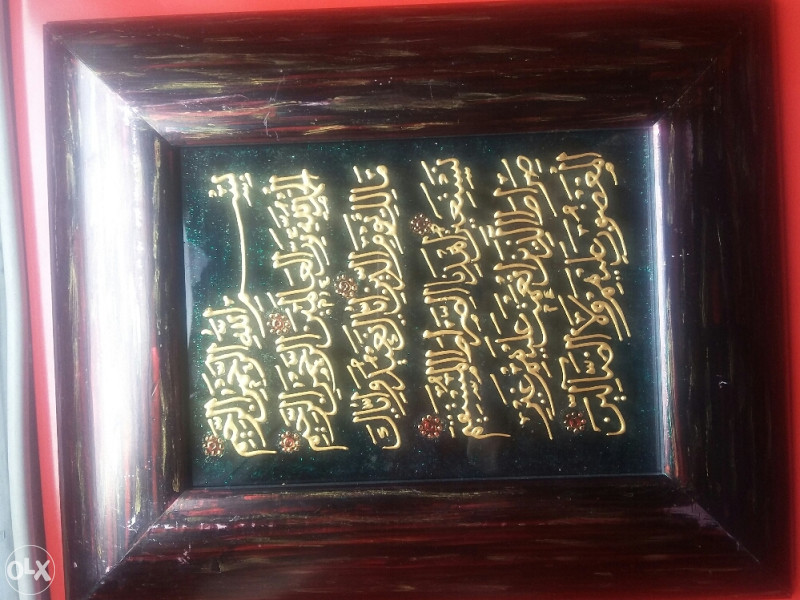 بِسْمِ اللَّهِ الرَّحْمَٰنِ الرَّحِيمِ
الْحَمْدُ لِلَّهِ رَبِّ الْعَالَمِينَ الرَّحْمَٰنِ الرَّحِيمِ
مَالِكِ يَوْمِ الدِّينِ إِيَّاكَ نَعْبُدُ وَإِيَّاكَ
نَسْتَعِينُ اهْدِنَا الصِّرَاطَ الْمُسْتَقِيمَ
صِرَاطَ الَّذِينَ أَنْعَمْتَ عَلَيْهِمْ غَيْرِ
الْمَغْضُوبِ عَلَيْهِمْ وَلَا الضَّالِّينَ
OLX